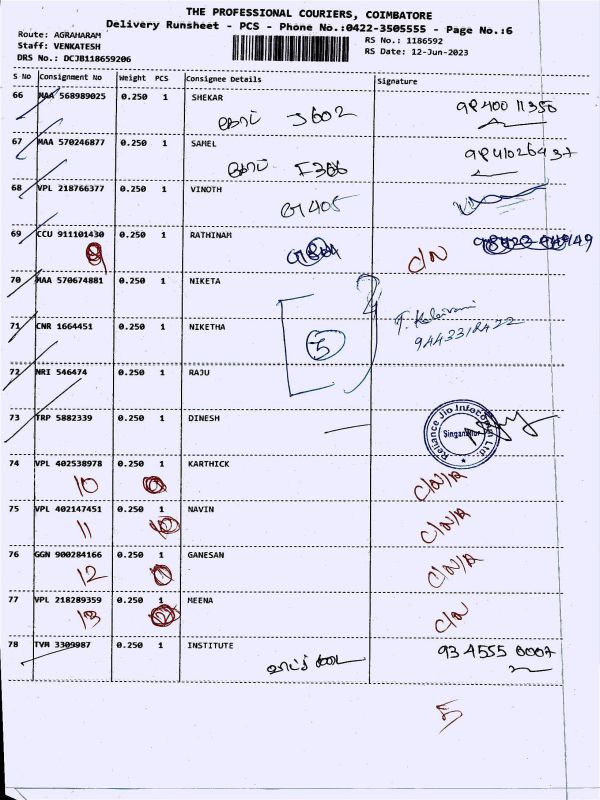 THE PROFESSIONAL COURIERS, COIMBATORE
Delivery Runsheet - PCS - Phone No.:0422-3505555 - Page No.:6
Route: AGRAHARAM
Staff: VENKATESH
DRS No.: DCJB118659206
RS No.: 1186592
RS Date: 12-Jun-2023
S No Consignment No Weight PCS Consignee Details Signature
66 MAA 568989025 0.250 1 SHEKAR
J602 98400 11350
67 MAA 570246877 0.250 1 SAMEL
F306 9841026437
68 VPL 218766377 0.250 1 VINOTH
G1405
69 CCU 911101430 0.250 1 RATHINAM
C/N
70 MAA 570674881 0.250 1 NIKETA
71 CNR 1664451 0.250 1 NIKETHA
5
72 NRI 546474 0.250 1 RAJU
73 TRP 5882339 0.250 1 DINESH
Reliance Jio Infocomm Ltd.
Singanallur
74 VPL 402538978 0.250 1 KARTHICK
10 C/N/A
75 VPL 402147451 0.250 1 NAVIN
11 C/N/A
76 GGN 900284166 0.250 1 GANESAN
12 C/N/A
77 VPL 218289359 0.250 1 MEENA
13 C/N
78 TVM 3309987 0.250 1 INSTITUTE
93 4555 0007
5